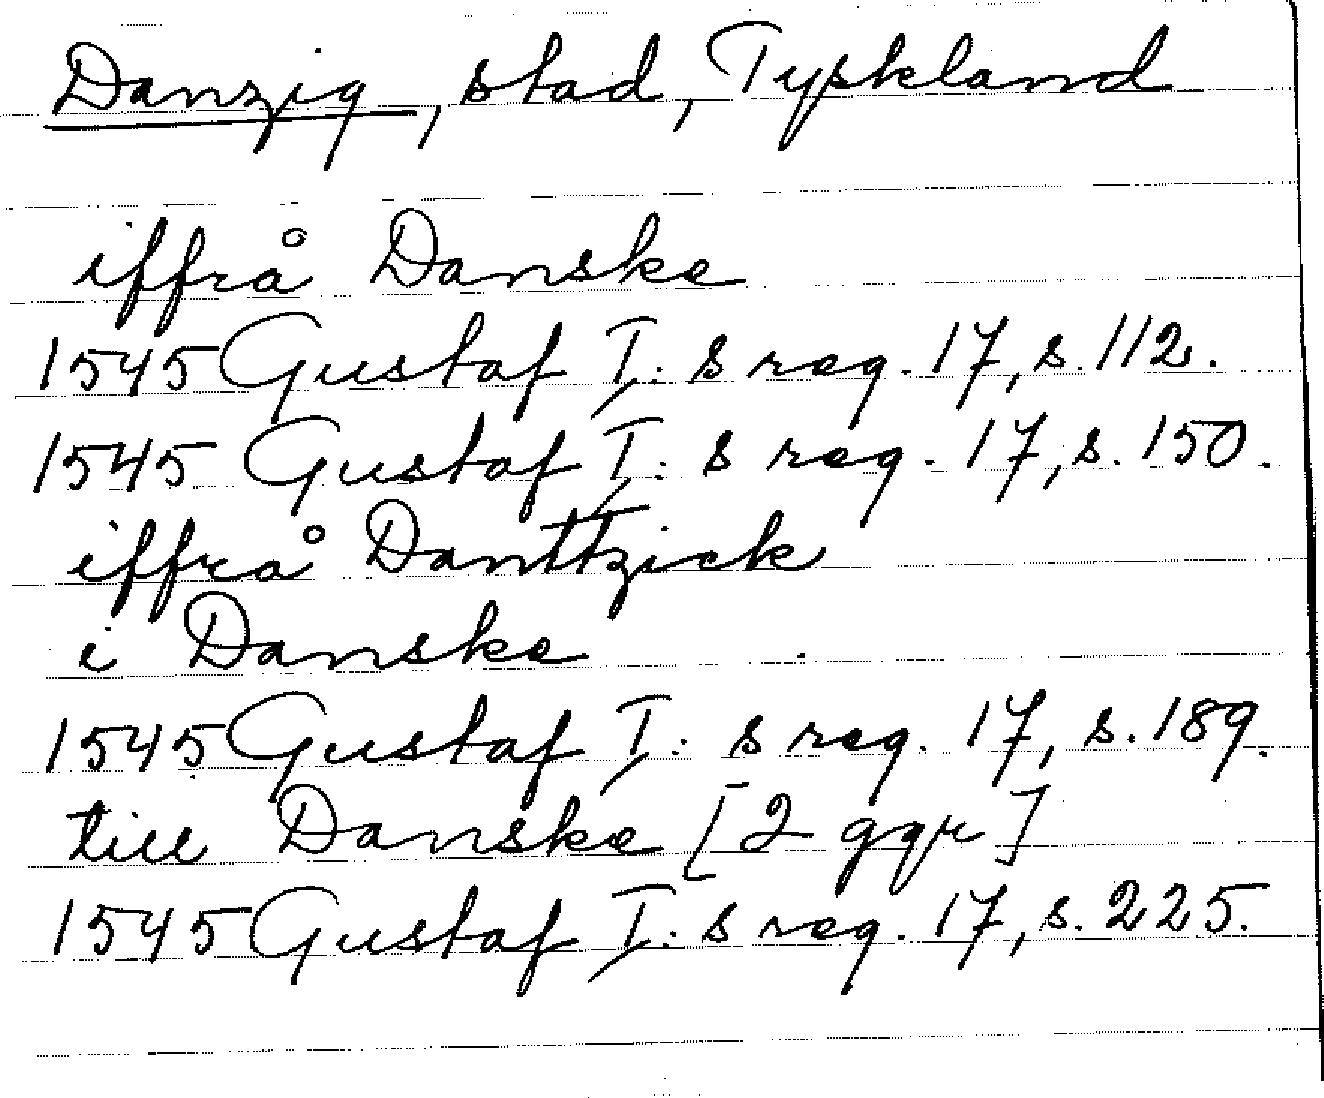 Danzig, stad, Tyskland
iffrå Danske
1545 Gustaf I:s reg. 17, s. 112.
1545 Gustaf I:s reg. 17, s. 150.
iffrå Danttzick
i Danske
1545 Gustaf I:s reg. 17, s. 189.
till Danske [2 ggr]
1545 Gustaf I:s reg. 17, s. 225.